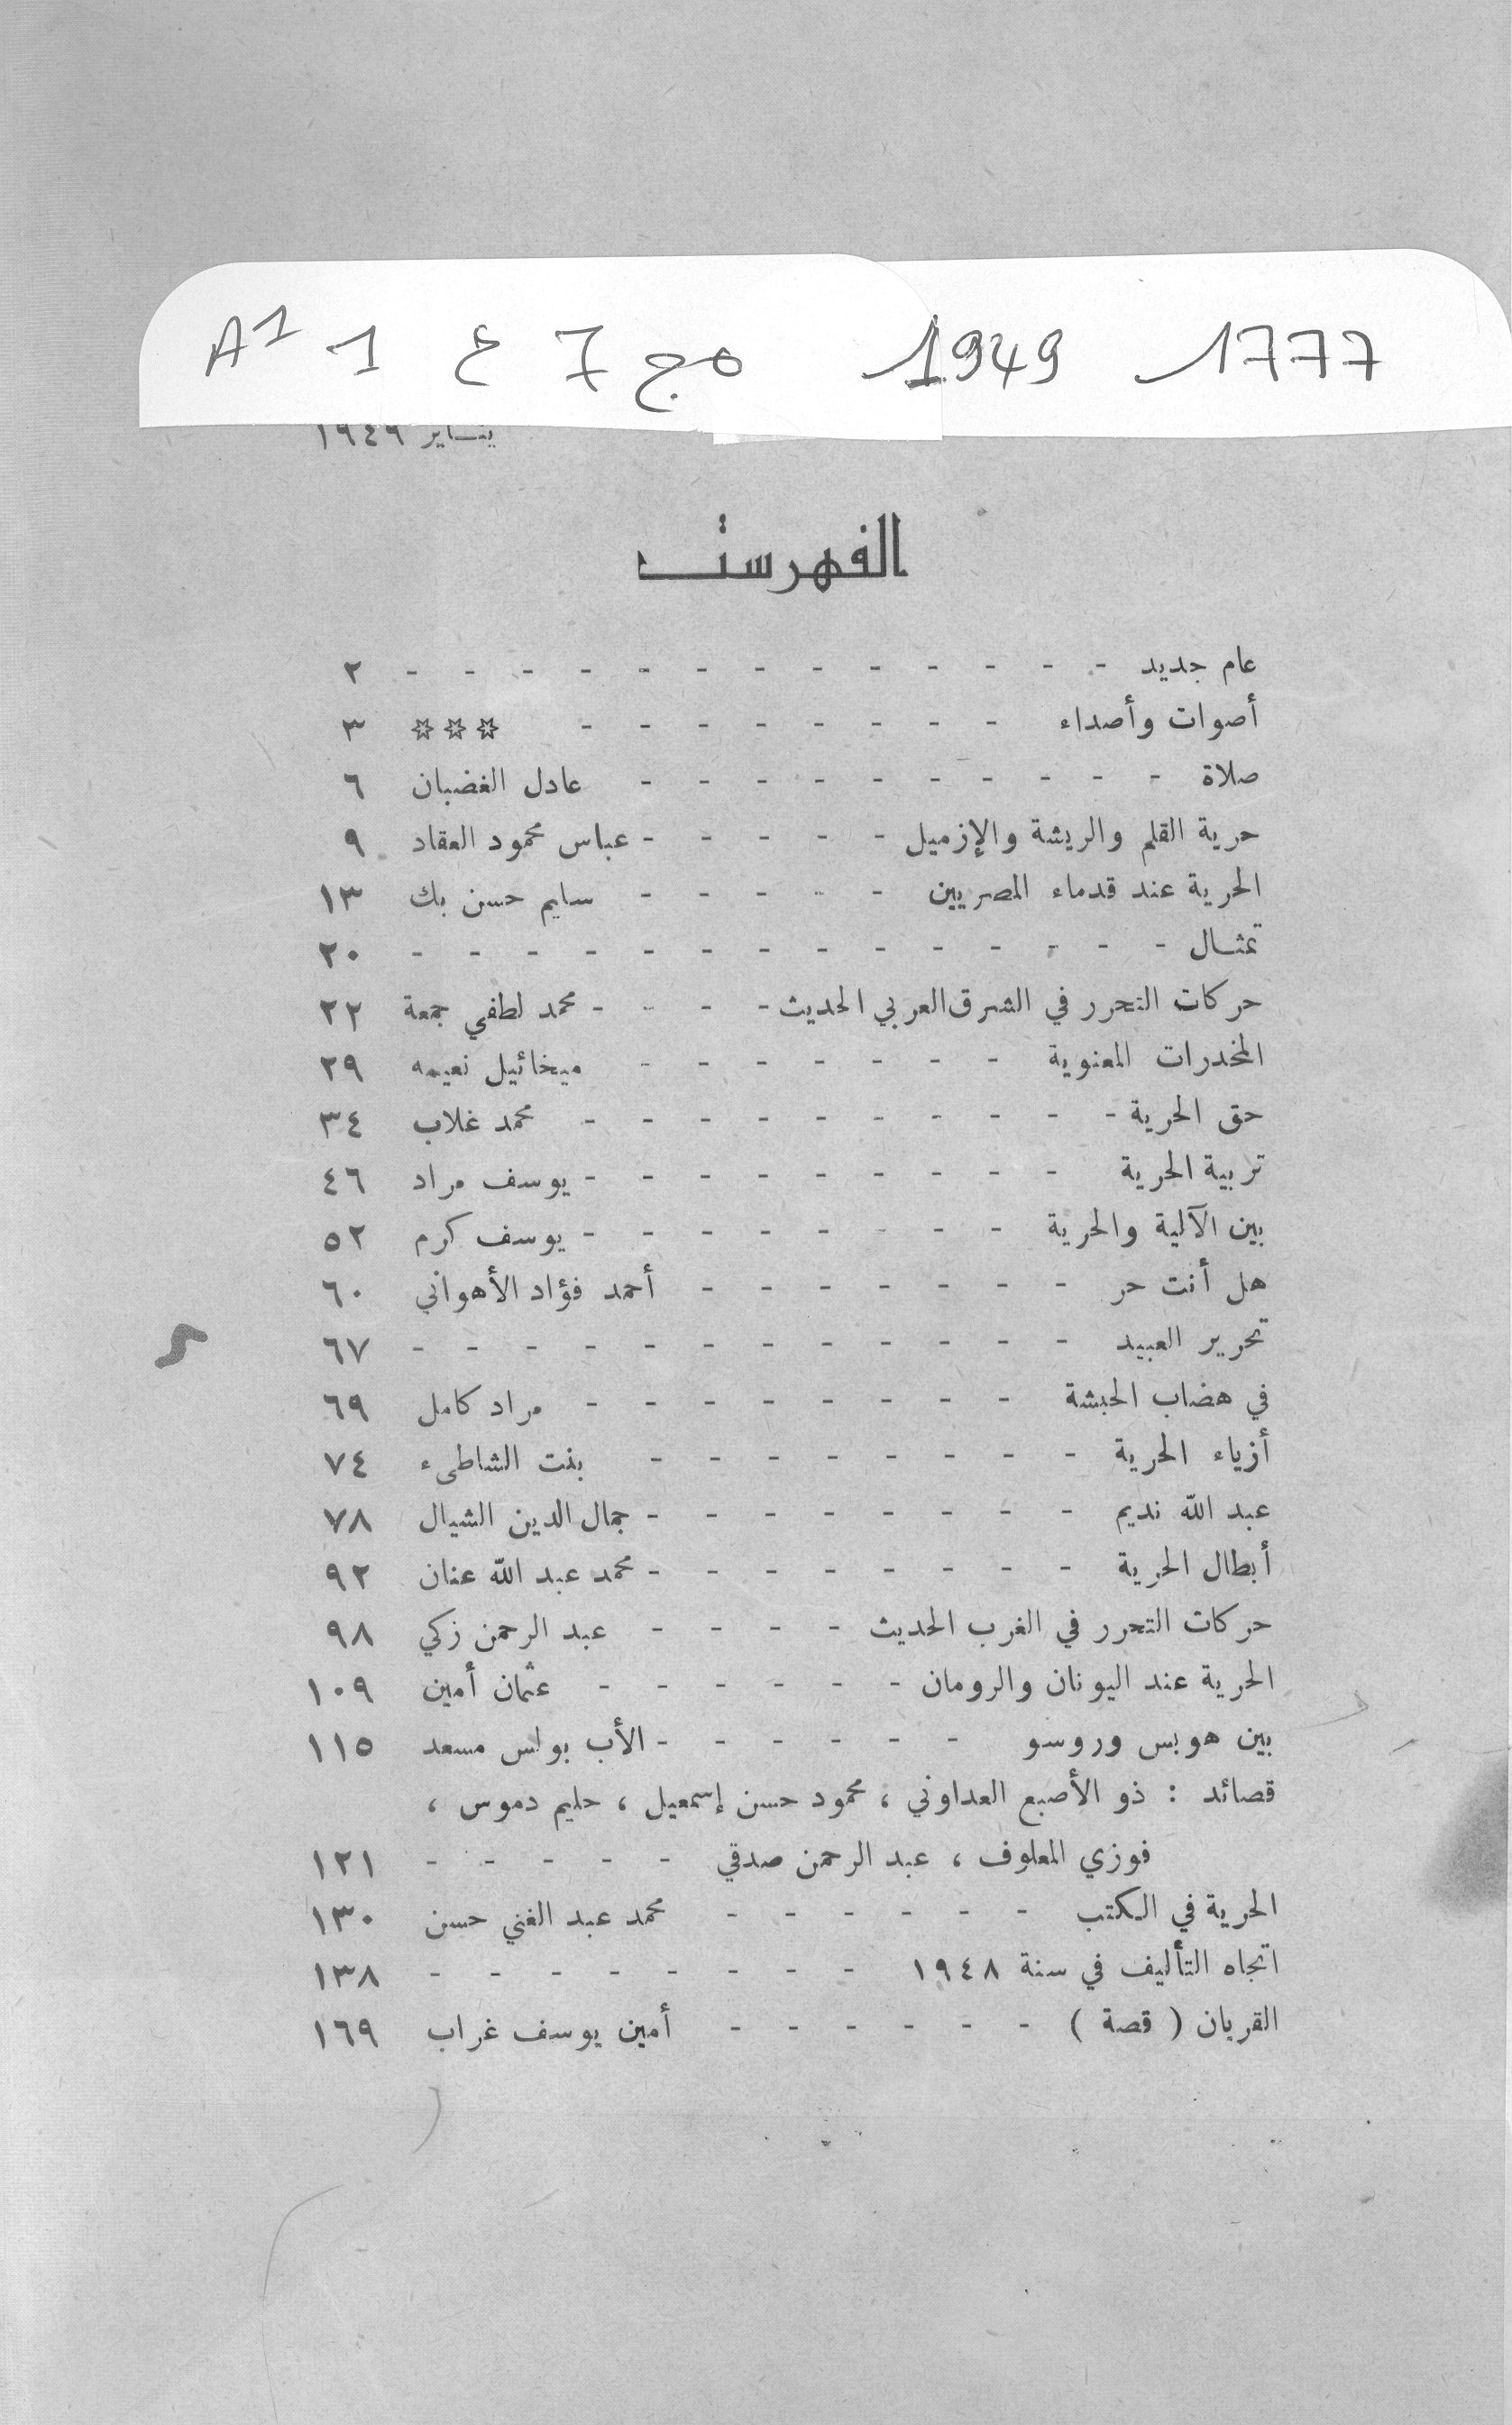 A1 1 ع 7 مج 1949 1777
يناير ١٩٤٩
الفهرست
عام جديد - - - - - - - - - - - - - ٢
أصوات وأصداء - - - - - - - - *** ٣
صلاة - - - - - - - - - - عادل الغضبان ٦
حرية القلم والريشة والإزميل - - - - - عباس محمود العقاد ٩
الحرية عند قدماء المصريين - - - - - سليم حسن بك ١٣
تمثال - - - - - - - - - - - - - - ٢٠
حركات التحرر في الشرق العربي الحديث - - - - محمد لطفي جمعة ٢٢
المخدرات المعنوية - - - - - - - ميخائيل نعيمه ٢٩
حق الحرية - - - - - - - - - - محمد غلاب ٣٤
تربية الحرية - - - - - - - - - يوسف مراد ٤٦
بين الآلية والحرية - - - - - - - - يوسف كرم ٥٢
هل أنت حر - - - - - - - أحمد فؤاد الأهواني ٦٠
تحرير العبيد - - - - - - - - - - - - ٦٧
في هضاب الحبشة - - - - - - - - مراد كامل ٦٩
أزياء الحرية - - - - - - - - بنت الشاطىء ٧٤
عبد الله نديم - - - - - - - - جمال الدين الشيال ٧٨
أبطال الحرية - - - - - - - - محمد عبد الله عنان ٩٢
حركات التحرر في الغرب الحديث - - - - عبد الرحمن زكي ٩٨
الحرية عند اليونان والرومان - - - - - - عثمان أمين ١٠٩
بين هوبس وروسو - - - - - - الأب بولس مسعد ١١٥
قصائد : ذو الأصبع العداوني ، محمود حسن إسمعيل ، حليم دموس ،
فوزي المعلوف ، عبد الرحمن صدقي - - - - - ١٢١
الحرية في الكتب - - - - - - محمد عبد الغني حسن ١٣٠
اتجاه التأليف في سنة ١٩٤٨ - - - - - - - - ١٣٨
القربان ( قصة ) - - - - - - أمين يوسف غراب ١٦٩